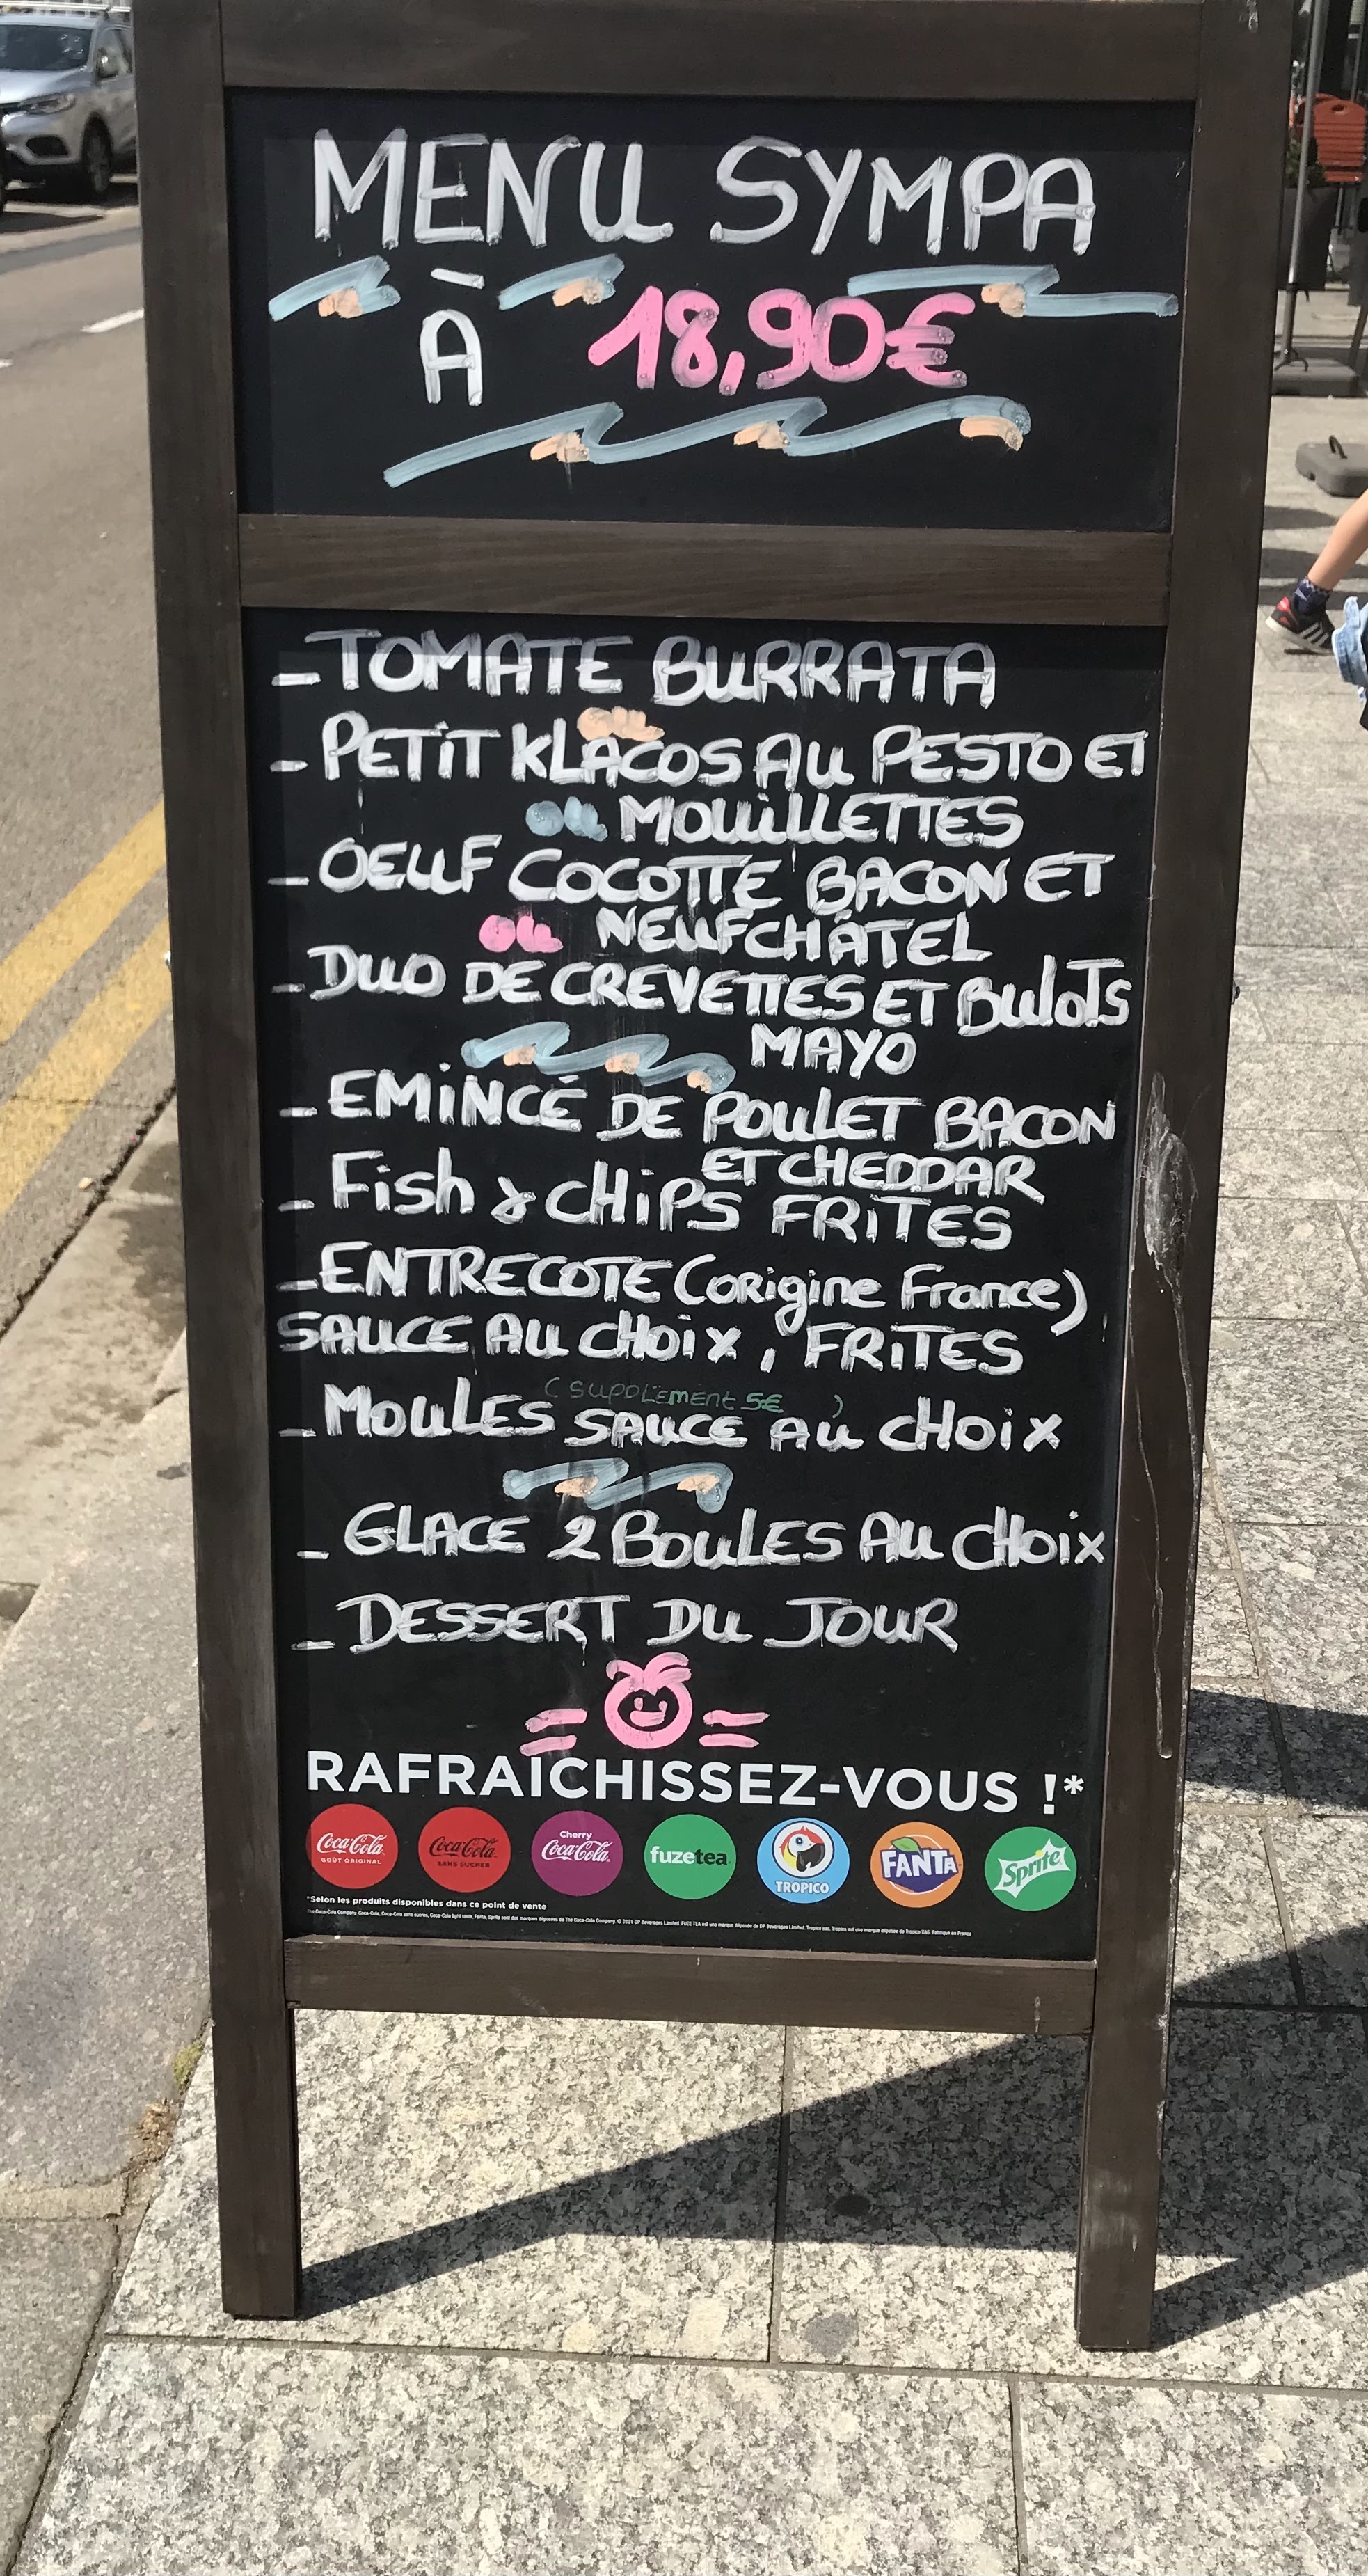 MENU SYMPA
À 18,90€
- TOMATE BURRATA
ou
- PETIT KLACOS AU PESTO ET
ou MOUILLETTES
- OEUF COCOTTE BACON ET
ou NEUFCHÂTEL
- DUO DE CREVETTES ET BULOTS
MAYO
- EMINCÉ DE POULET BACON
ET CHEDDAR
- Fish & CHIPS FRITES
- ENTRECOTE (origine France)
SAUCE AU CHOIX, FRITES
(SUPPLEMENT 5€ )
- MOULES SAUCE AU CHOIX
- GLACE 2 BOULES AU CHOIX
- DESSERT DU JOUR
RAFRAICHISSEZ-VOUS !*
Coca-Cola GOÛT ORIGINAL
Coca-Cola SANS SUCRES
Cherry Coca-Cola
fuzetea
TROPICO
FANTA
Sprite
*Selon les produits disponibles dans ce point de vente